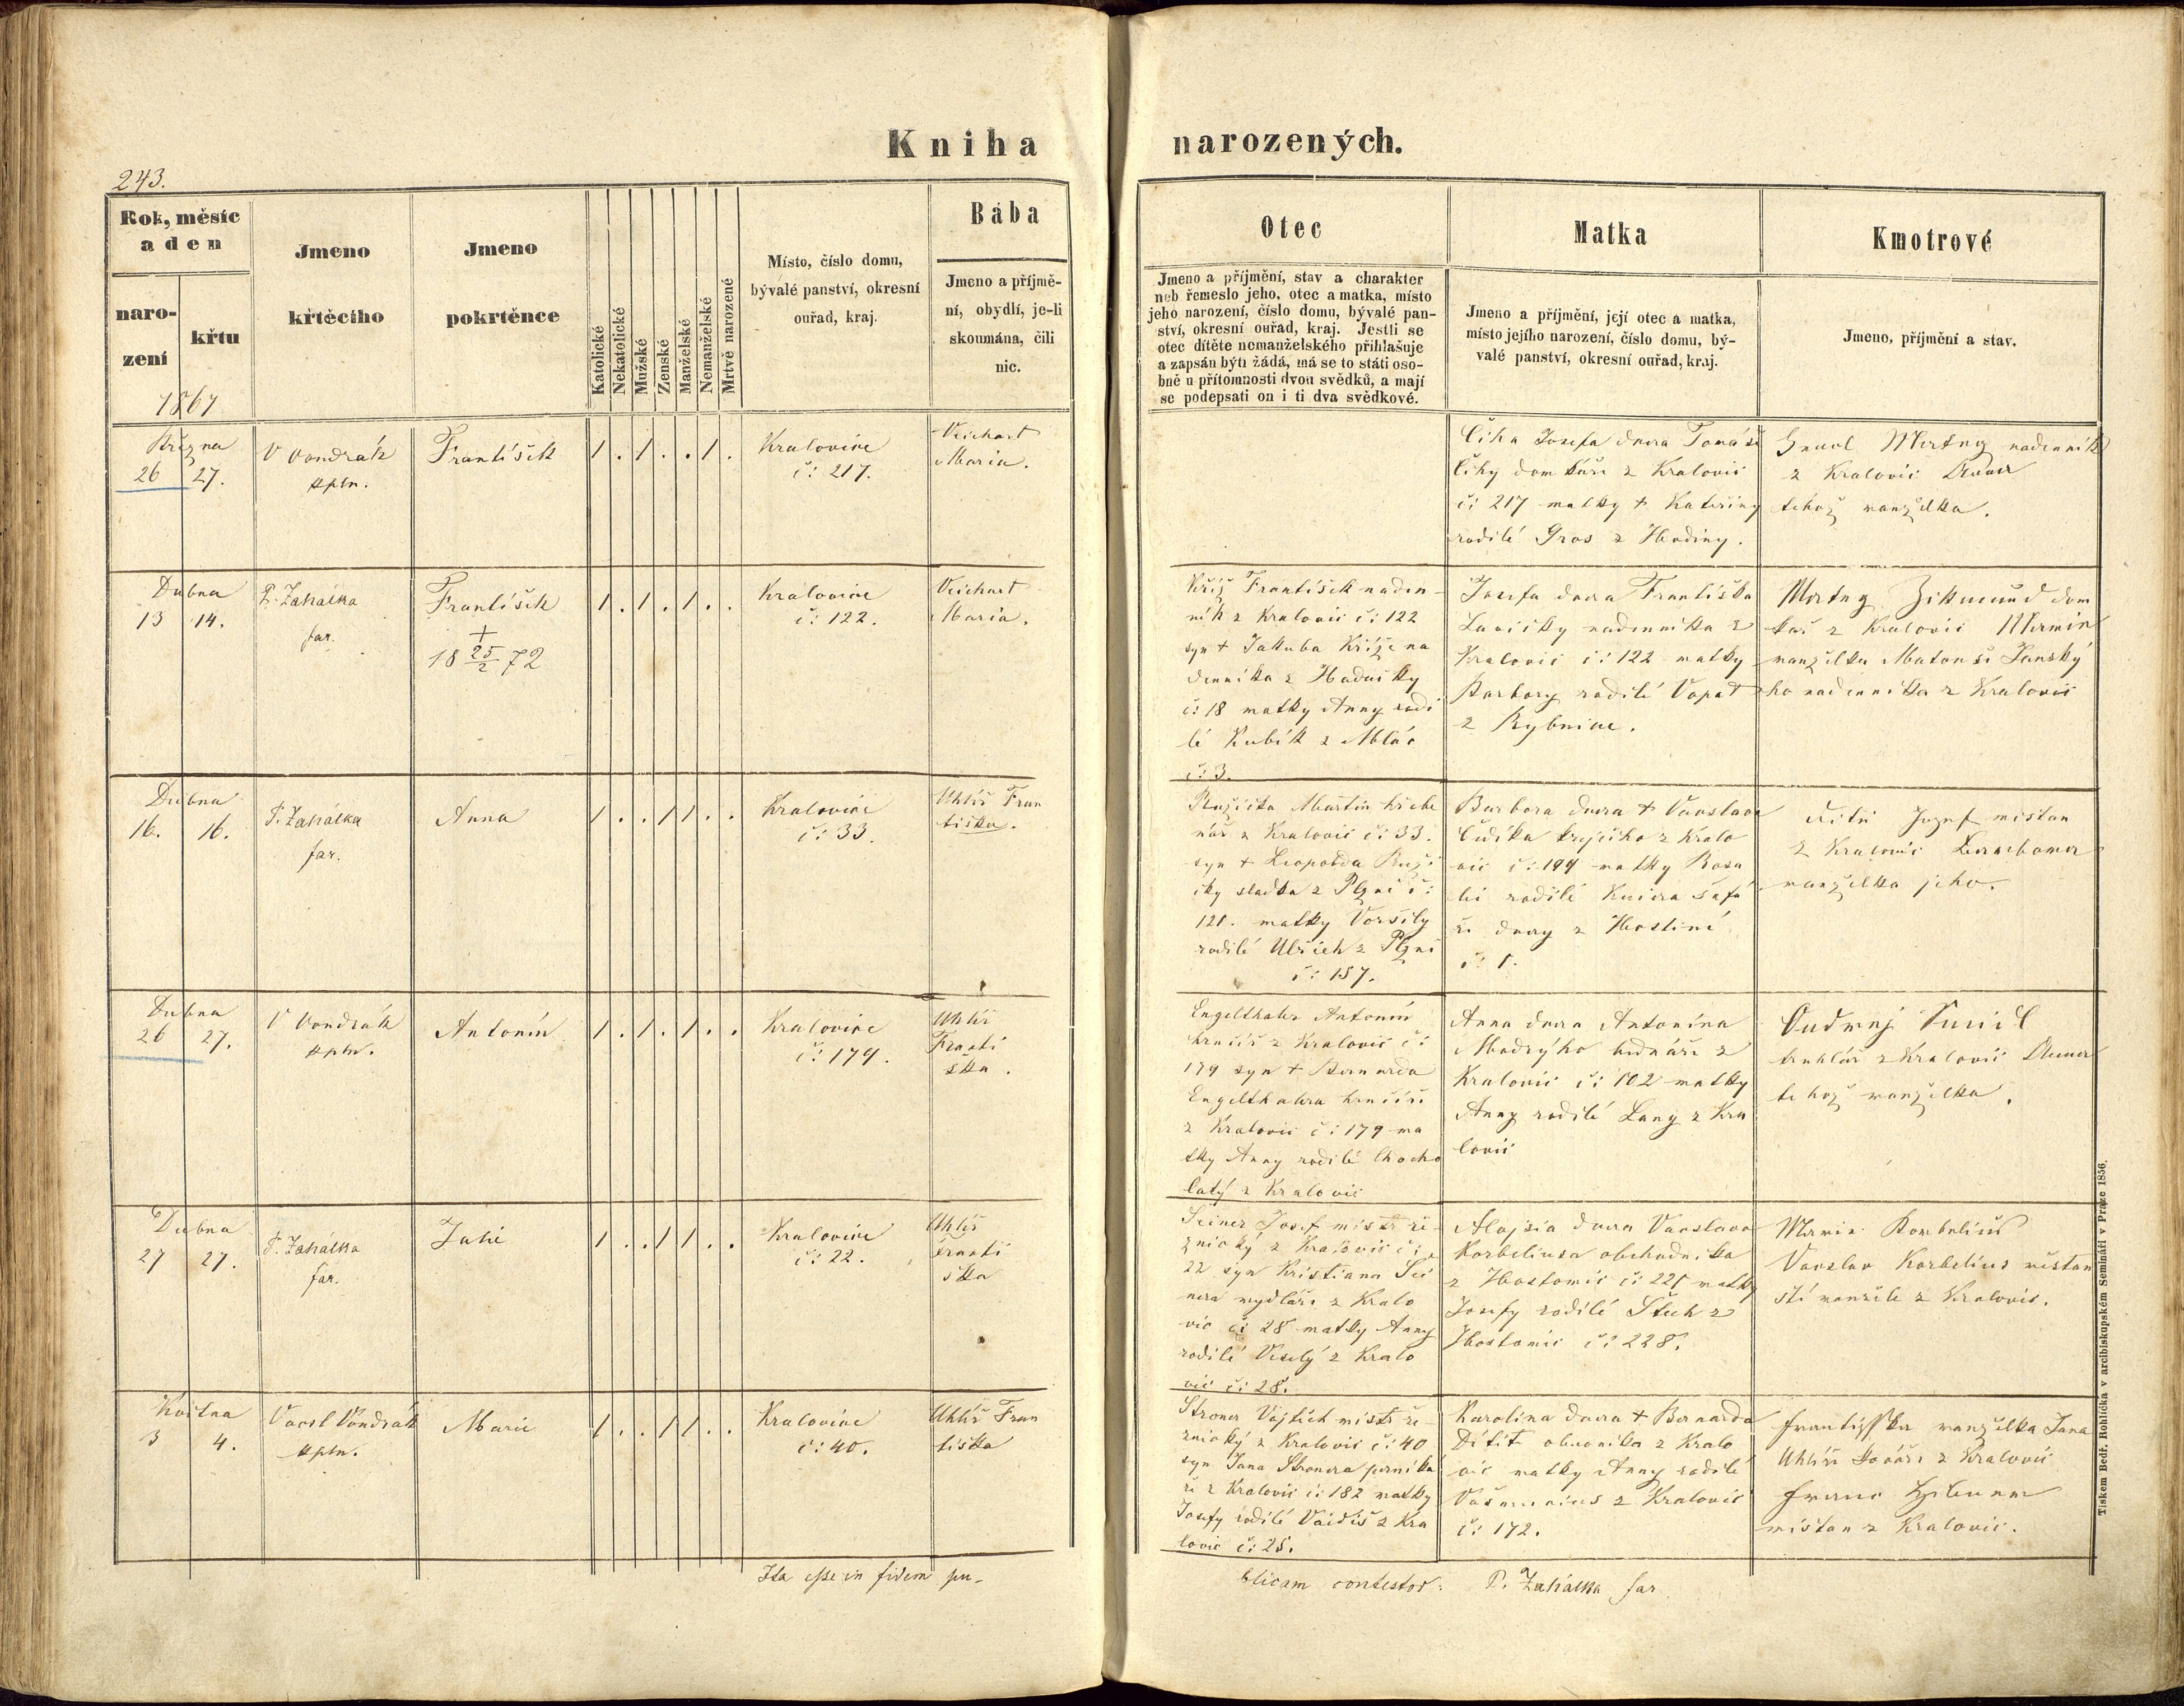 Kniha narozených.
243.
Rok, měsíc
a den
naro-
zení
křtu
Jmeno
křtěcího
Jmeno
pokrtěnce
Katolické
Nekatolické
Mužské
Ženské
Manželské
Nemanželské
Mrtvě narozené
Místo, číslo domu,
bývalé panství, okresní
ouřad, kraj.
Bába
Jmeno a příjmě-
ní, obydlí, je-li
skoumána, čili
nic.
Otec
Jmeno a příjmění, stav a charakter
neb řemeslo jeho, otec a matka, místo
jeho narození, číslo domu, bývalé pan-
ství, okresní ouřad, kraj. Jestli se
otec dítěte nemanželského přihlašuje
a zapsán býti žádá, má se to státi oso-
bně u přítomnosti dvou svědků, a mají
se podepsati on i ti dva svědkové.
Matka
Jmeno a příjmění, její otec a matka,
místo jejího narození, číslo domu, bý-
valé panství, okresní ouřad, kraj.
Kmotrové
Jmeno, příjmění a stav.
1867
Března
26 27.
V Vondrák
kpln.
František
1 . 1 . . 1 .
Kralovice
č: 217.
Veichart
Maria.
Číha Josefa dcera Tomáše
Číhy domkáře z Kralovic
č: 217 matky + Kateřiny
rodilé Gros z Hodiny.
Mertny nadenník
z Kralovic
téhož manželka.
Dubna
13 14.
P. Zahálka
far.
František
+
18 25/2 72
1 . 1 . 1 . .
Kralovice
č: 122.
Veichart
Maria.
Kříž František naden-
ník z Kralovic č: 122
syn + Jakuba Kříže na
denníka z Hadačky
č: 18 matky Anny rodi
lé Kubík z Mlác
č: 3.
Josefa dcera Františka
nadenníka z
Kralovic č: 122 matky
Barbory rodilé Vopat
z Rybnice.
Mertny Zikmund dom
kář z Kralovic
manželka Matouše Janský
ho nadenníka z Kralovic
Dubna
16. 16.
P. Zahálka
far.
Anna
1 . . 1 1 . .
Kralovice
č: 33.
Uhlíř Fran
tiška.
Ružička Martin hřebe
nář z Kralovic č: 33.
syn + Leopolda Ruži
čky sládka z Plzně č:
121. matky Voršily
rodilé Ulrich z Plzně
č: 157.
Barbora dcera + Vácslava
Čudíka krejčího z Kralo
vic č: 194 matky Rosa
lie rodilé šafá
ře dcery z Hostiné
č: 1.
Josef měštan
z Kralovic
manželka jeho.
Dubna
26 27.
V Vondrák
kpln.
Antonín
1 . 1 . 1 . .
Kralovice
č: 179.
Uhlíř
Franti
ška.
Engelthaler Antonín
hrnčíř z Kralovic č:
179 syn + Bernarda
Engelthalera hrnčíře
z Kralovic č: 179 ma
tky Anny rodilé Chocho
latý z Kralovic
Anna dcera Antonína
Modrýho bednáře z
Kralovic č: 102 matky
Anny rodilé Lang z Kra
lovic
Ondřej Šmidl
truhlář z Kralovic
téhož manželka.
Dubna
27 27.
P. Zahálka
far.
Julie
1 . . 1 1 . .
Kralovice
č: 22.
Uhlíř
Franti
ška
Seiner Josef mistr ře-
znický z Kralovic č:
22 syn Kristiana Sei
nera mydláře z Kralo
vic č: 28 matky Anny
rodilé Veselý z Kralo
vic č: 28.
Alojsia dcera Vácslava
Korbeliusa obchodníka
z Hostomic č: 225 matky
Josefy rodilé Štech z
Hostomic č: 228.
Marie Korbelius
Vácslav Korbelius měštan
ští manželé z Kralovic.
Května
3 4.
Vácsl Vondrák
kpln.
Marie
1 . . 1 1 . .
Kralovice
č: 40.
Uhlíř Fran
tiška
Stroner Vojtěch mistr ře-
znický z Kralovic č: 40
syn Jana Stronera perníká
ře z Kralovic č: 182 matky
Josefy rodilé Vaidiš z Kra
lovic č: 25.
Karolina dcera + Bernarda
Dítět obuvníka z Kralo
vic matky Anny rodilé
z Kralovic
č: 172.
Františka manželka Jana
Uhlíře kováře z Kralovic
Franc
měštan z Kralovic.
Ita esse in fidem pu-
blicam contestor: P. Zahálka far
Tiskem Bedř. Rohlíčka v arcibiskupském Semináři v Praze 1856.